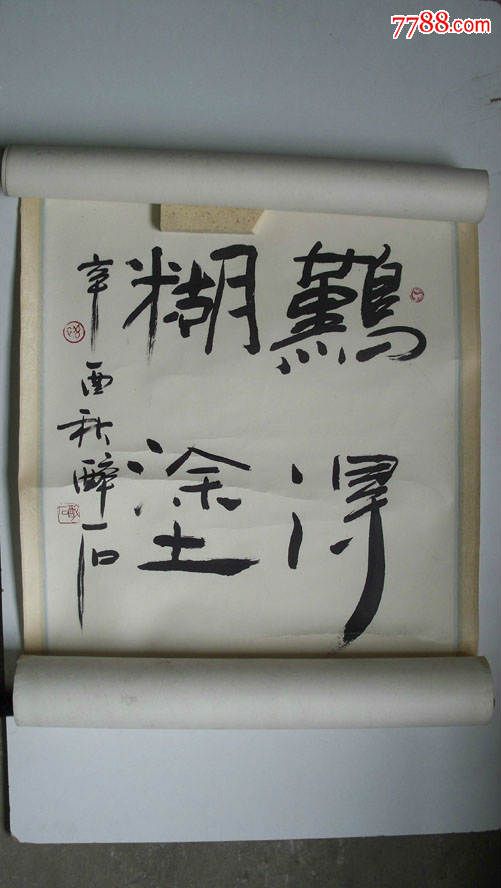 7788.com
難得
糊塗
辛酉秋醉石